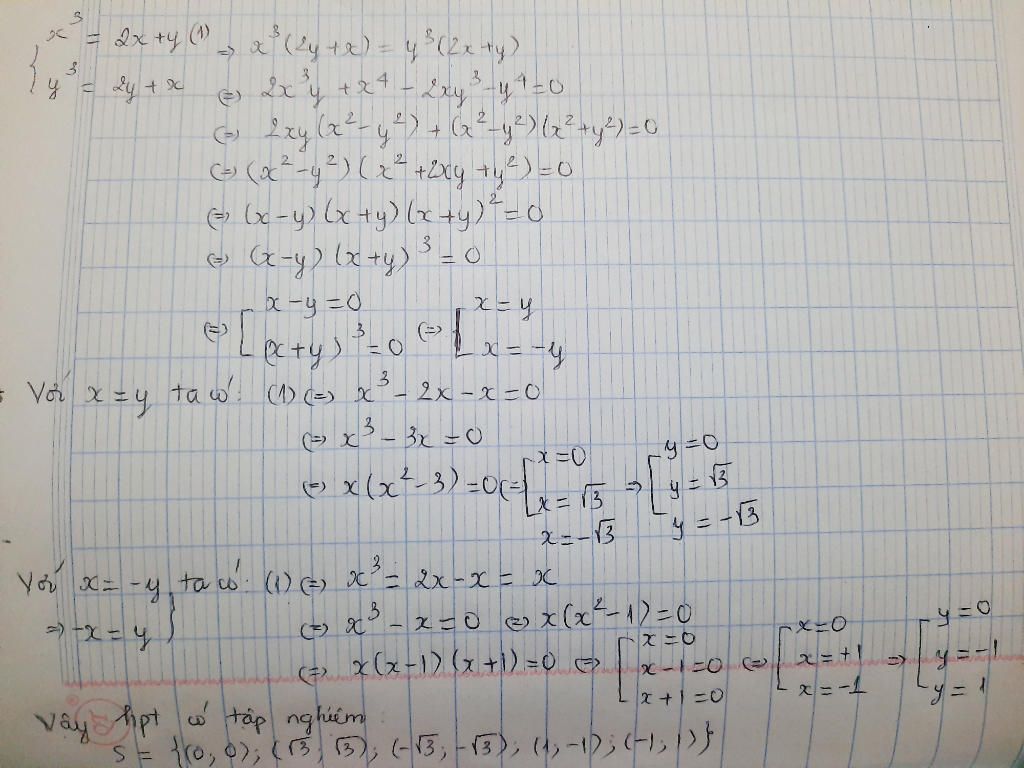 { x³ = 2x+y (1) ⇒ x³(2y+x) = y³(2x+y)
y³ = 2y+x ⇔ 2x³y + x⁴ - 2xy³ - y⁴ = 0
⇔ 2xy(x²-y²) + (x²-y²)(x²+y²) = 0
⇔ (x²-y²)(x²+2xy+y²) = 0
⇔ (x-y)(x+y)(x+y)² = 0
⇔ (x-y)(x+y)³ = 0
⇔ [ x-y=0 ⇔ [ x=y
(x+y)³=0 x=-y
Với x=y ta có: (1) ⇔ x³ - 2x - x = 0
⇔ x³ - 3x = 0
⇔ x(x²-3) = 0 ⇔ [ x=0 ⇒ [ y=0
x=√3 y=√3
x=-√3 y=-√3
Với x=-y ta có: (1) ⇔ x³ = 2x-x = x
⇒ -x=y } ⇔ x³ - x = 0 ⇔ x(x²-1) = 0
⇔ x(x-1)(x+1) = 0 ⇔ [ x=0 ⇔ [ x=0 ⇒ [ y=0
x-1=0 x=+1 y=-1
x+1=0 x=-1 y=1
Vậy hpt có tập nghiệm:
S = {(0,0); (√3;√3); (-√3;-√3); (1,-1); (-1,1)}